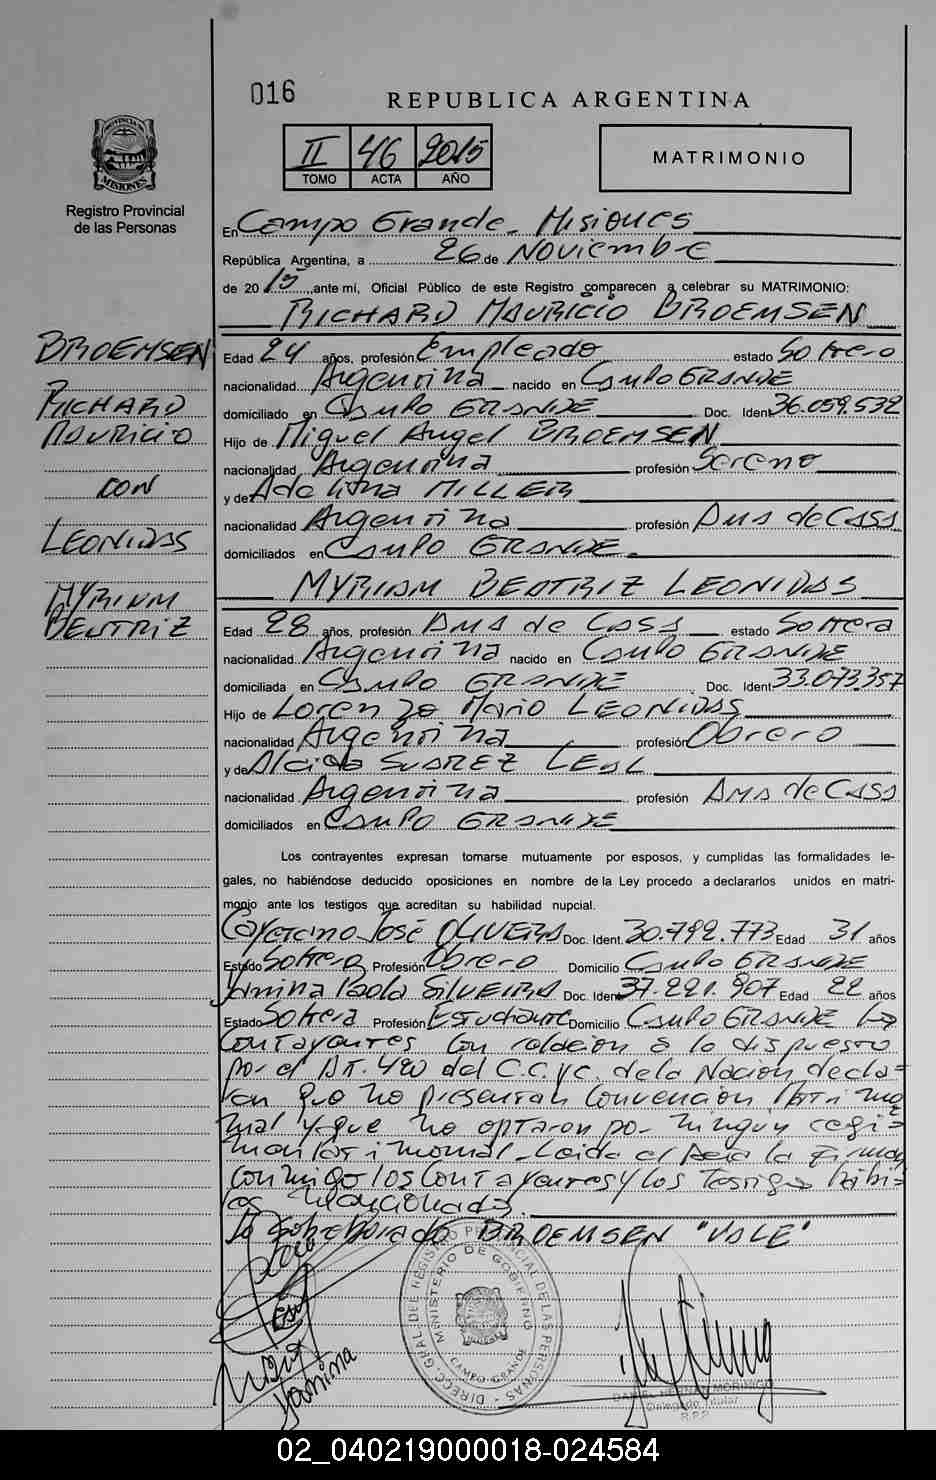 016
REPUBLICA ARGENTINA
II 46 2015
TOMO ACTA AÑO
MATRIMONIO
PROVINCIA DE MISIONES
Registro Provincial
de las Personas
En Campo Grande - Misiones
República Argentina, a 26 de Noviembre
de 2015, ante mí, Oficial Público de este Registro comparecen a celebrar su MATRIMONIO:
RICHARD MAURICIO BROEMSEN
BROEMSEN
RICHARD
MAURICIO
CON
LEONIDAS
MYRIAM
BEATRIZ
Edad 24 años, profesión Empleado estado Soltero
nacionalidad Argentina nacido en Campo GRANDE
domiciliado en Campo GRANDE Doc. Ident 36.059.532
Hijo de Miguel Angel BROEMSEN
nacionalidad Argentina profesión Sereno
y de Adelina MILLER
nacionalidad Argentina profesión Ama de Casa
domiciliados en Campo GRANDE
MYRIAM BEATRIZ LEONIDAS
Edad 28 años, profesión Ama de Casa estado Soltera
nacionalidad Argentina nacido en Campo GRANDE
domiciliada en Campo GRANDE Doc. Ident 33.073.357
Hijo de Lorenzo Mario LEONIDAS
nacionalidad Argentina profesión Obrero
y de Alcida SUAREZ LEAL
nacionalidad Argentina profesión Ama de Casa
domiciliados en Campo GRANDE
Los contrayentes expresan tomarse mutuamente por esposos, y cumplidas las formalidades le-
gales, no habiéndose deducido oposiciones en nombre de la Ley procedo a declararlos unidos en matri-
monio ante los testigos que acreditan su habilidad nupcial.
Cayetano José OLIVEIRA Doc. Ident. 30.792.773 Edad 31 años
Estado Soltero Profesión Obrero Domicilio Campo GRANDE
Yanina Paola SILVEIRA Doc. Ident 37.221.907 Edad 22 años
Estado Soltera Profesión Estudiante Domicilio Campo GRANDE Los
Contrayentes Con relación a lo dispuesto
por el Art. 420 del C.C.yC. de la Nación decla=
ran que no presentan Convención Matrimo
nial y que no optaron por ningun regi=
men Patrimonial. Leida el Acta la Firman
conmigo los Contrayentes y los Testigos
mencionados.
Lo Sobreborrado BROEMSEN "VALE"
DIRECC. GRAL. DEL REGISTRO PROVINCIAL DE LAS PERSONAS
MINISTERIO DE GOBIERNO
CAMPO GRANDE
Yanina
Delegado Titular
R.P.P.
02_040219000018-024584